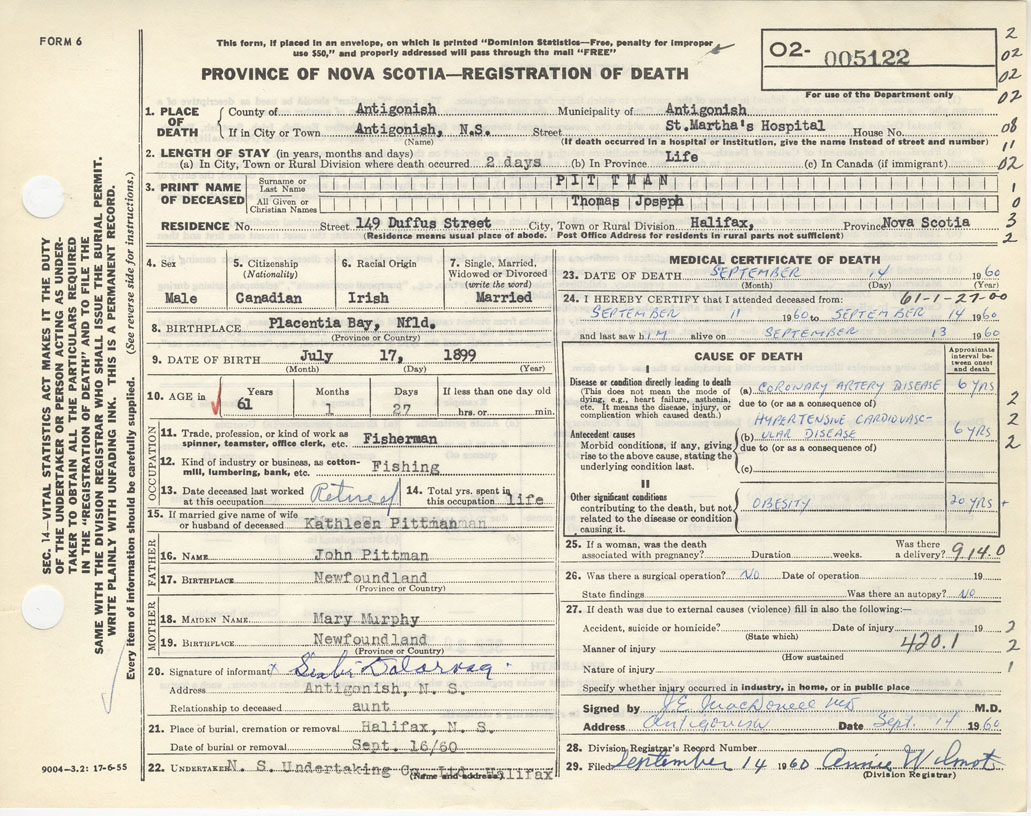 FORM 6
This form, if placed in an envelope, on which is printed "Dominion Statistics—Free, penalty for improper
use $50," and properly addressed will pass through the mail "FREE"
PROVINCE OF NOVA SCOTIA—REGISTRATION OF DEATH
O2- 005122
For use of the Department only
2
02
02
02
08
11
02
1
0
3
2
1. PLACE OF DEATH
County of Antigonish Municipality of Antigonish
If in City or Town Antigonish, N.S. Street St.Martha's Hospital House No.
(Name) (If death occurred in a hospital or institution, give the name instead of street and number)
2. LENGTH OF STAY (in years, months and days)
(a) In City, Town or Rural Division where death occurred 2 days (b) In Province Life (c) In Canada (if immigrant)
3. PRINT NAME OF DECEASED
Surname or Last Name PITTMAN
All Given or Christian Names Thomas Joseph
RESIDENCE No. Street 149 Duffus Street City, Town or Rural Division Halifax, Province Nova Scotia
(Residence means usual place of abode. Post Office Address for residents in rural parts not sufficient)
SEC. 14—VITAL STATISTICS ACT MAKES IT THE DUTY
OF THE UNDERTAKER OR PERSON ACTING AS UNDER-
TAKER TO OBTAIN ALL THE PARTICULARS REQUIRED
IN THE "REGISTRATION OF DEATH" AND TO FILE THE
SAME WITH THE DIVISION REGISTRAR WHO SHALL ISSUE THE BURIAL PERMIT.
WRITE PLAINLY WITH UNFADING INK. THIS IS A PERMANENT RECORD.
Every item of information should be carefully supplied. (See reverse side for instructions.)
4. Sex
Male
5. Citizenship
(Nationality)
Canadian
6. Racial Origin
Irish
7. Single, Married,
Widowed or Divorced
(write the word)
Married
8. BIRTHPLACE Placentia Bay, Nfld.
(Province or Country)
9. DATE OF BIRTH July 17, 1899
(Month) (Day) (Year)
10. AGE in
Years Months Days If less than one day old
61 1 27 hrs. or min.
OCCUPATION
11. Trade, profession, or kind of work as
spinner, teamster, office clerk, etc. Fisherman
12. Kind of industry or business, as cotton-
mill, lumbering, bank, etc. Fishing
13. Date deceased last worked
at this occupation Retired
14. Total yrs. spent in
this occupation life
15. If married give name of wife
or husband of deceased Kathleen Pittman
FATHER
16. NAME John Pittman
17. BIRTHPLACE Newfoundland
(Province or Country)
MOTHER
18. MAIDEN NAME Mary Murphy
19. BIRTHPLACE Newfoundland
(Province or Country)
20. Signature of informant x
Address Antigonish, N. S.
Relationship to deceased aunt
21. Place of burial, cremation or removal Halifax, N. S.
Date of burial or removal Sept. 16/60
22. UNDERTAKER N. S. Undertaking Co. Ltd. Halifax
(Name and address)
9004—3.2: 17-6-55
MEDICAL CERTIFICATE OF DEATH
23. DATE OF DEATH SEPTEMBER 14 1960
(Month) (Day) (Year)
24. I HEREBY CERTIFY that I attended deceased from: 61-1-27-00
SEPTEMBER 11 1960 to SEPTEMBER 14 1960
and last saw hIM alive on SEPTEMBER 13 1960
CAUSE OF DEATH
Approximate
interval be-
tween onset
and death
I
Disease or condition directly leading to death
(This does not mean the mode of
dying, e.g., heart failure, asthenia,
etc. It means the disease, injury, or
complication which caused death.)
(a) CORONARY ARTERY DISEASE 6 YRS
due to (or as a consequence of)
Antecedent causes
Morbid conditions, if any, giving
rise to the above cause, stating the
underlying condition last.
HYPERTENSIVE CARDIOVASC-
(b) ULAR DISEASE 6 YRS
due to (or as a consequence of)
(c)
2
2
2
II
Other significant conditions
contributing to the death, but not
related to the disease or condition
causing it.
OBESITY 20 YRS +
25. If a woman, was the death
associated with pregnancy? Duration weeks. Was there
a delivery? 914.0
26. Was there a surgical operation? NO Date of operation 19
State findings Was there an autopsy? NO
27. If death was due to external causes (violence) fill in also the following:—
Accident, suicide or homicide? Date of injury 19
(State which)
Manner of injury 420.1
(How sustained
Nature of injury
2
2
1
Specify whether injury occurred in industry, in home, or in public place
Signed by J.E. MacDonell MD M.D.
Address Antigonish Date Sept. 14 1960
28. Division Registrar's Record Number
29. Filed September 14 1960 Annie Wilmot
(Division Registrar)